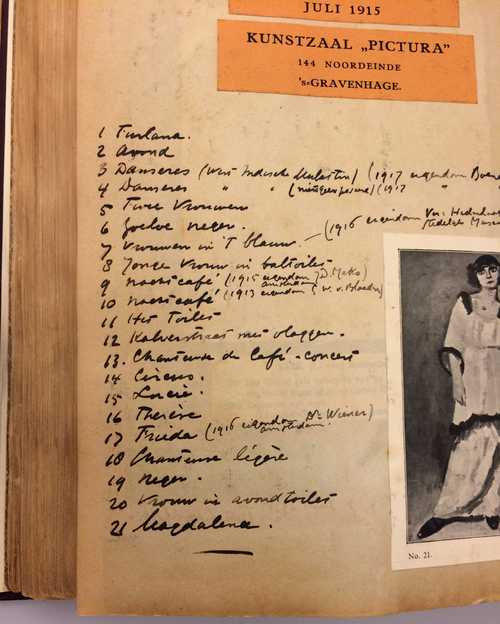 JULI 1915
KUNSTZAAL „PICTURA”
144 NOORDEINDE
's-GRAVENHAGE.
1 Furlana.
2 Avond
3 Danseres (West Indische (1917 eigendom
4 Danseres " " (1917 "
5 Twee Vrouwen
6 Goelve neger.
7 Vrouwen in 't blauw. — (1916 eigendom Ver:
8 Jonge Vrouw in baltoilet
9 Nachtcafé (1915 eigendom Amsterdam
10 Nachtcafé (1913 eigendom
11 Het Toilet
12 Kalverstraat met vlaggen.
13. Chanteuse de Café-concert
14 Circus.
15 Lucie.
16 Thérèse
17 Frieda (1916 eigendom Dr Wiener) Amsterdam.
18 Chanteuse légère
19 Neger.
20 Vrouw in avondtoilet
21 Magdalena.
No. 21.